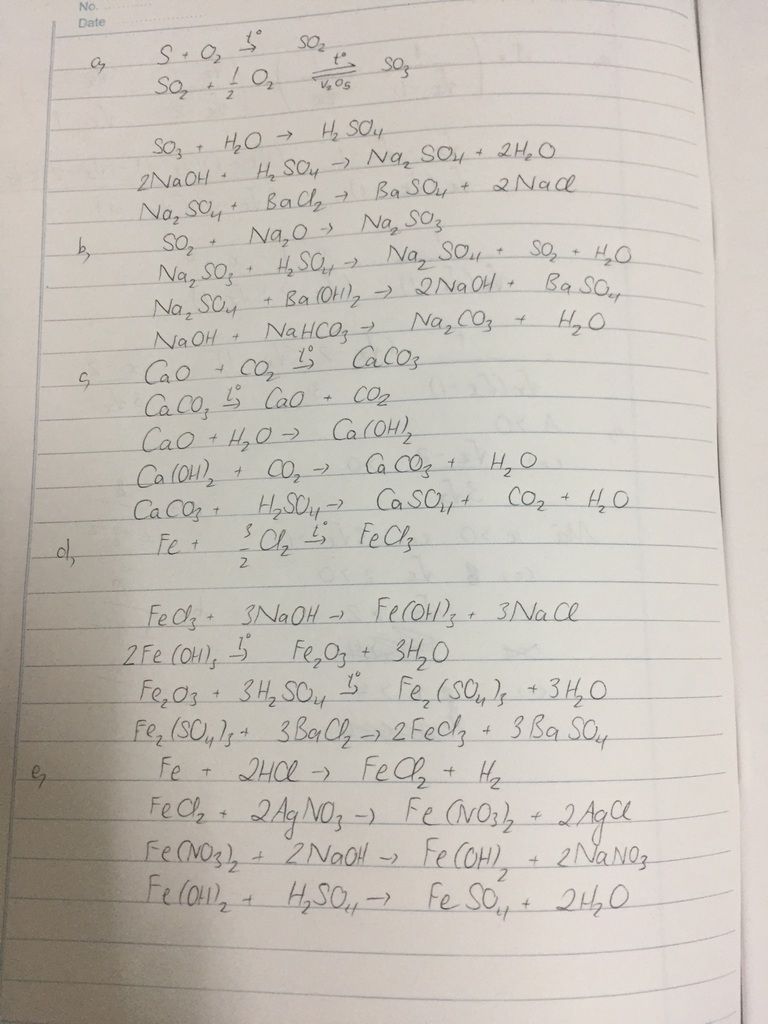 No.
Date
a, S + O₂ →(t°) SO₂
SO₂ + 1/2 O₂ ⇌(t°, V₂O₅) SO₃
SO₃ + H₂O → H₂SO₄
2NaOH + H₂SO₄ → Na₂SO₄ + 2H₂O
Na₂SO₄ + BaCl₂ → BaSO₄ + 2NaCl
b, SO₂ + Na₂O → Na₂SO₃
Na₂SO₃ + H₂SO₄ → Na₂SO₄ + SO₂ + H₂O
Na₂SO₄ + Ba(OH)₂ → 2NaOH + BaSO₄
NaOH + NaHCO₃ → Na₂CO₃ + H₂O
c, CaO + CO₂ →(t°) CaCO₃
CaCO₃ →(t°) CaO + CO₂
CaO + H₂O → Ca(OH)₂
Ca(OH)₂ + CO₂ → CaCO₃ + H₂O
CaCO₃ + H₂SO₄ → CaSO₄ + CO₂ + H₂O
d, Fe + 3/2 Cl₂ →(t°) FeCl₃
FeCl₃ + 3NaOH → Fe(OH)₃ + 3NaCl
2Fe(OH)₃ →(t°) Fe₂O₃ + 3H₂O
Fe₂O₃ + 3H₂SO₄ →(t°) Fe₂(SO₄)₃ + 3H₂O
Fe₂(SO₄)₃ + 3BaCl₂ → 2FeCl₃ + 3BaSO₄
e, Fe + 2HCl → FeCl₂ + H₂
FeCl₂ + 2AgNO₃ → Fe(NO₃)₂ + 2AgCl
Fe(NO₃)₂ + 2NaOH → Fe(OH)₂ + 2NaNO₃
Fe(OH)₂ + H₂SO₄ → FeSO₄ + 2H₂O